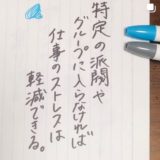 特定の派閥や
グループに入らなければ
仕事のストレスは
軽減できる。